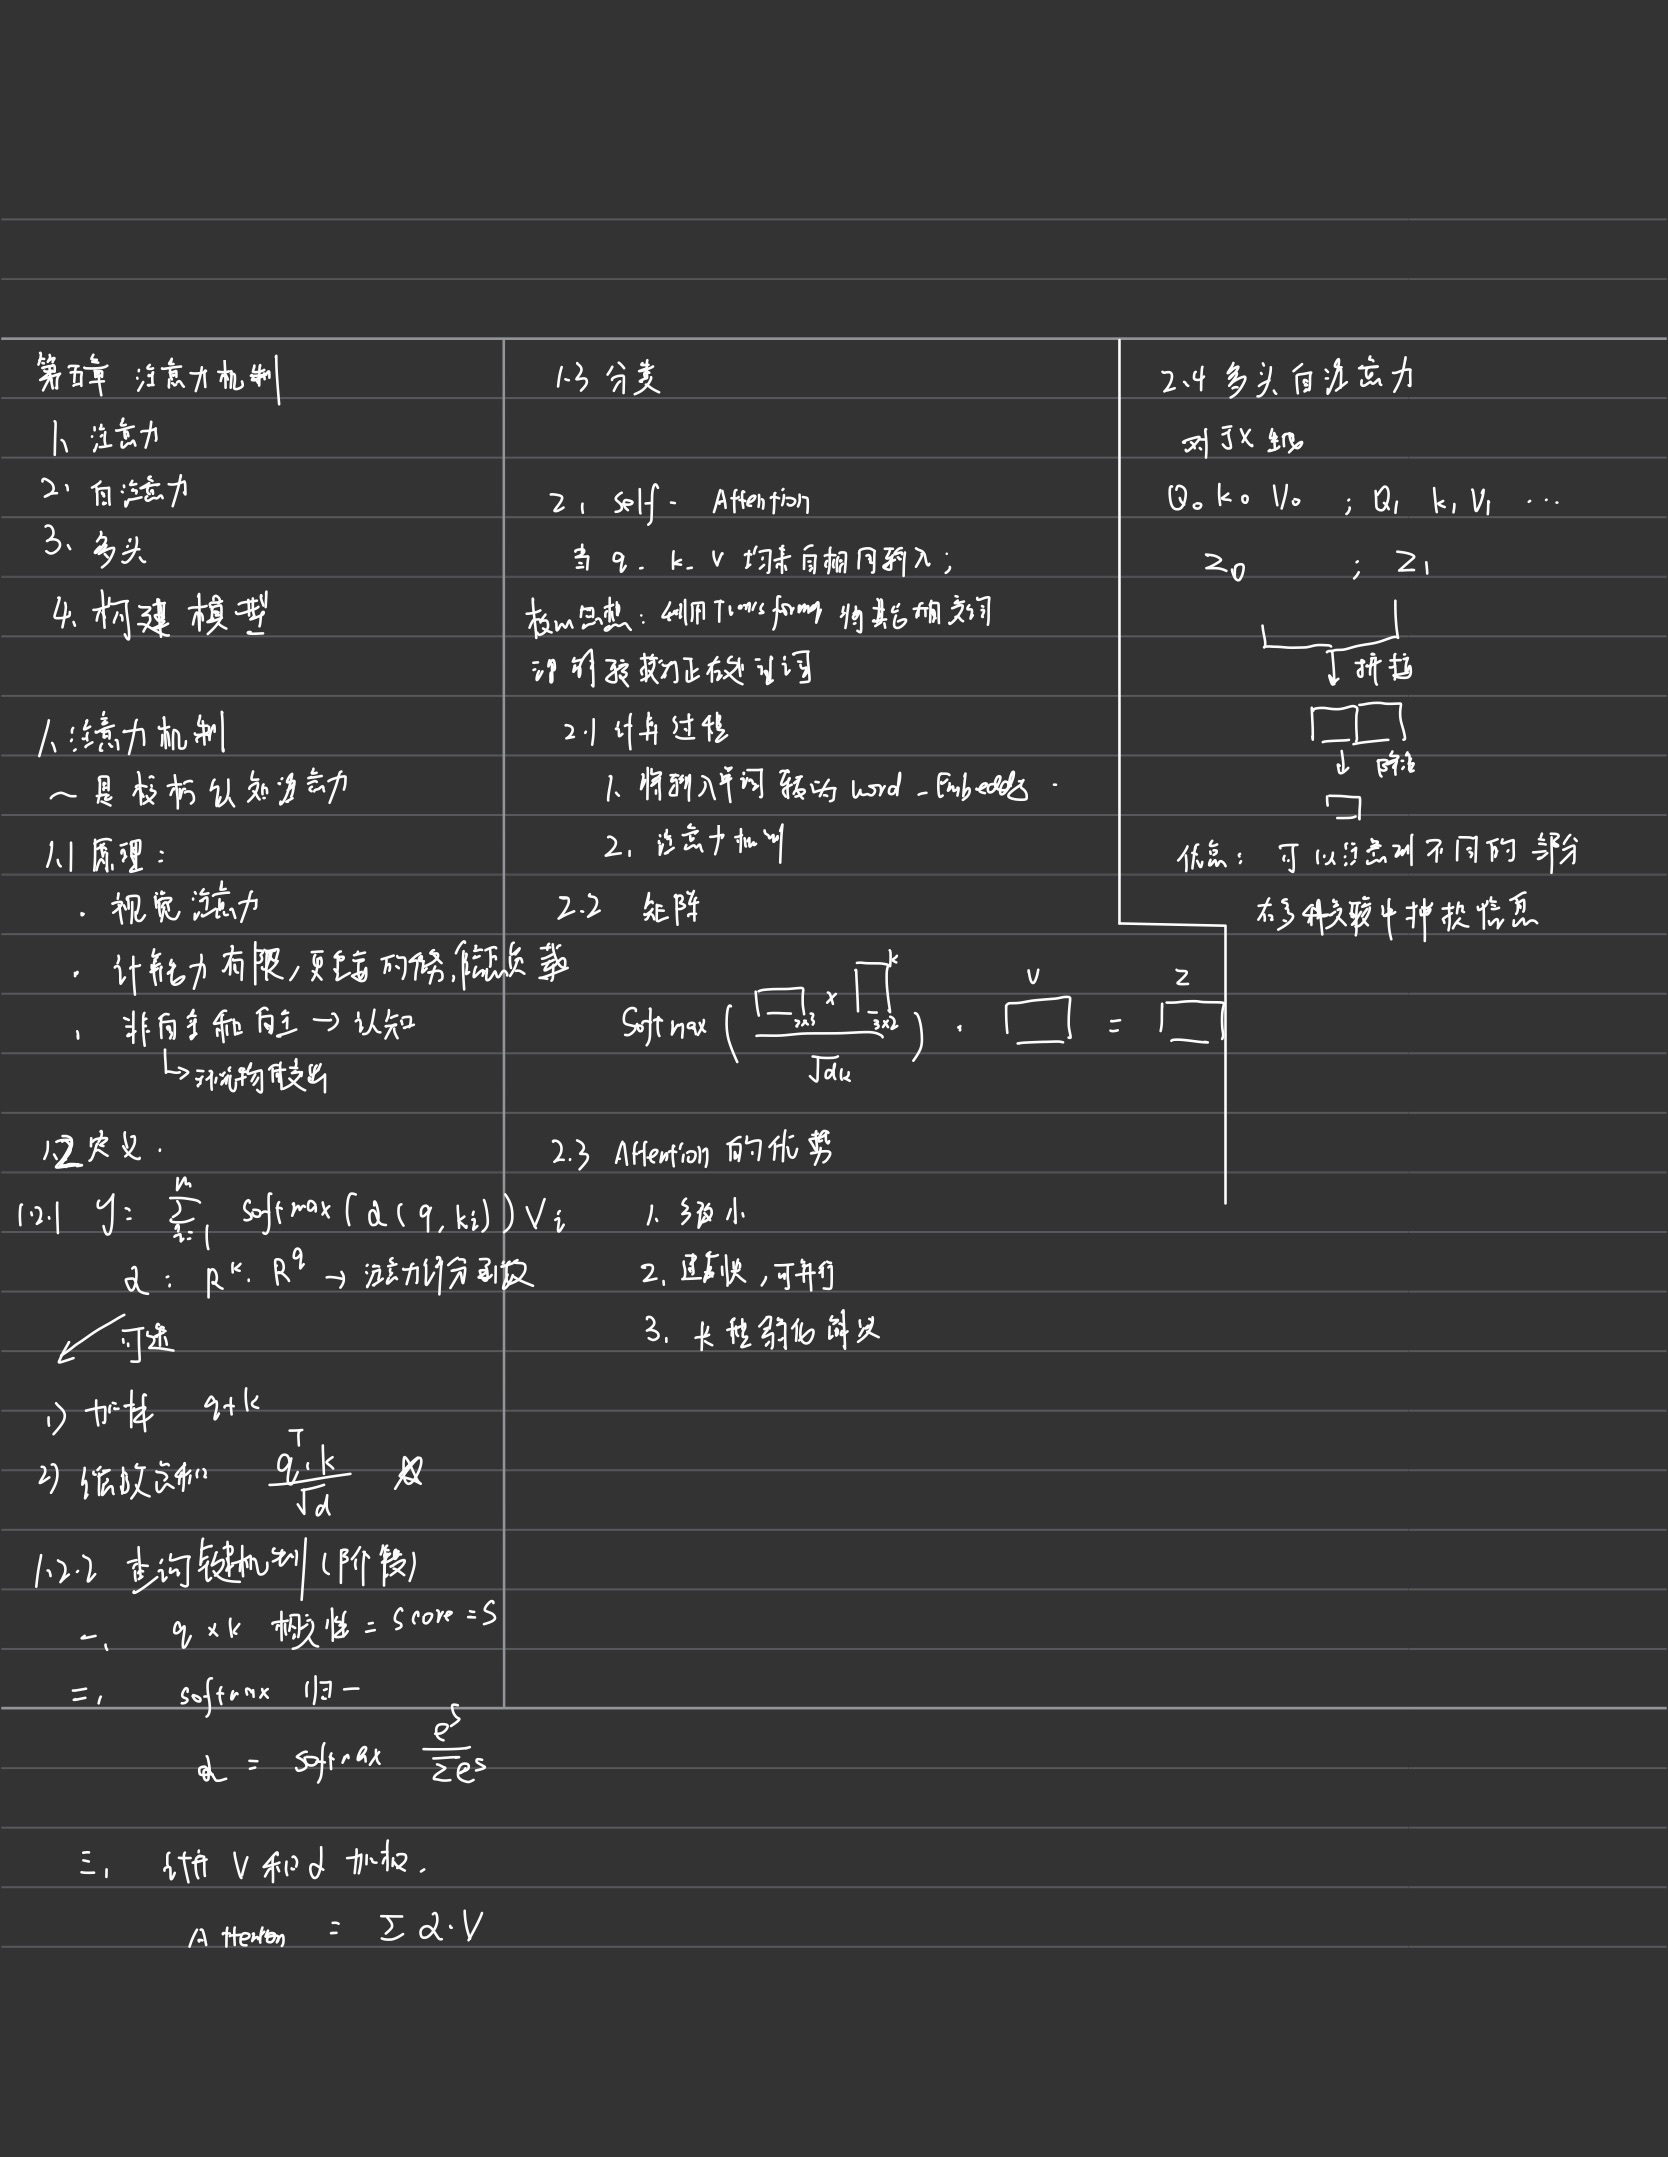 第五章 注意力机制
1、注意力
2、自注意力
3、多头
4、构建模型
1、注意力机制
～是模拟认知注意力
1.1 原理：
· 视觉注意力
· 计算能力有限，更重要的任务，信息负载
· 非自主和自主 → 认知
↳环境物体支出
1.2 定义.
1.2.1 y = Σ^n_{i=1} softmax(α(q, ki)) Vi
α : R^k · R^q → 注意力评分函数
可选
1) 加性 q+k
2) 缩放点积 q^T·k / √d
1.2.2 查询键机制(阶段)
一、 q × k 相关性 = Score = S
二、 softmax 归一
α = softmax e^s / Σe^s
三、 计算 V 和 α 加权.
Attention = Σ α·V
1.3 分类
2、Self - Attention
当 q、k、V 均来自相同输入；
核心思想：利用Transforms 将其它相关的
词 转换为正在处理词
2.1 计算过程
1、将输入单词转为 word-Embedding.
2、注意力机制
2.2 矩阵
Softmax ( 2×3 × k 3×2 / √dk ) · V = Z
2.3 Attention 的优势
1. 参数小
2. 速度快，可并行
3. 长 弱化
2.4 多头自注意力
对于X
Q0 k0 V0 ; Q1 k1 V1 ...
Z0 ; Z1
↓ 拼接
↓ 降维
优点： 可以注意到不同的部分
在多种 中捕捉信息